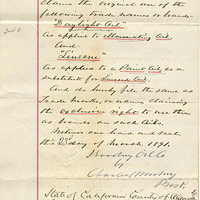 claims the original use of the
following trade names or brands
"Daylight Oil"
As applied to Illuminating Oil
And
"Linsene"
As applied to a Paint Oil, as a
substitute for Linseed Oil.
And do hereby file the same as
Trade Marks, or names, claiming
the exclusive right to use them
as brands on such Oils.
Witness our hand and seal
this 23rd day of March 1891.
Woodbury Oil Co
by
Charles Woodbury
Prest.
State of California County of